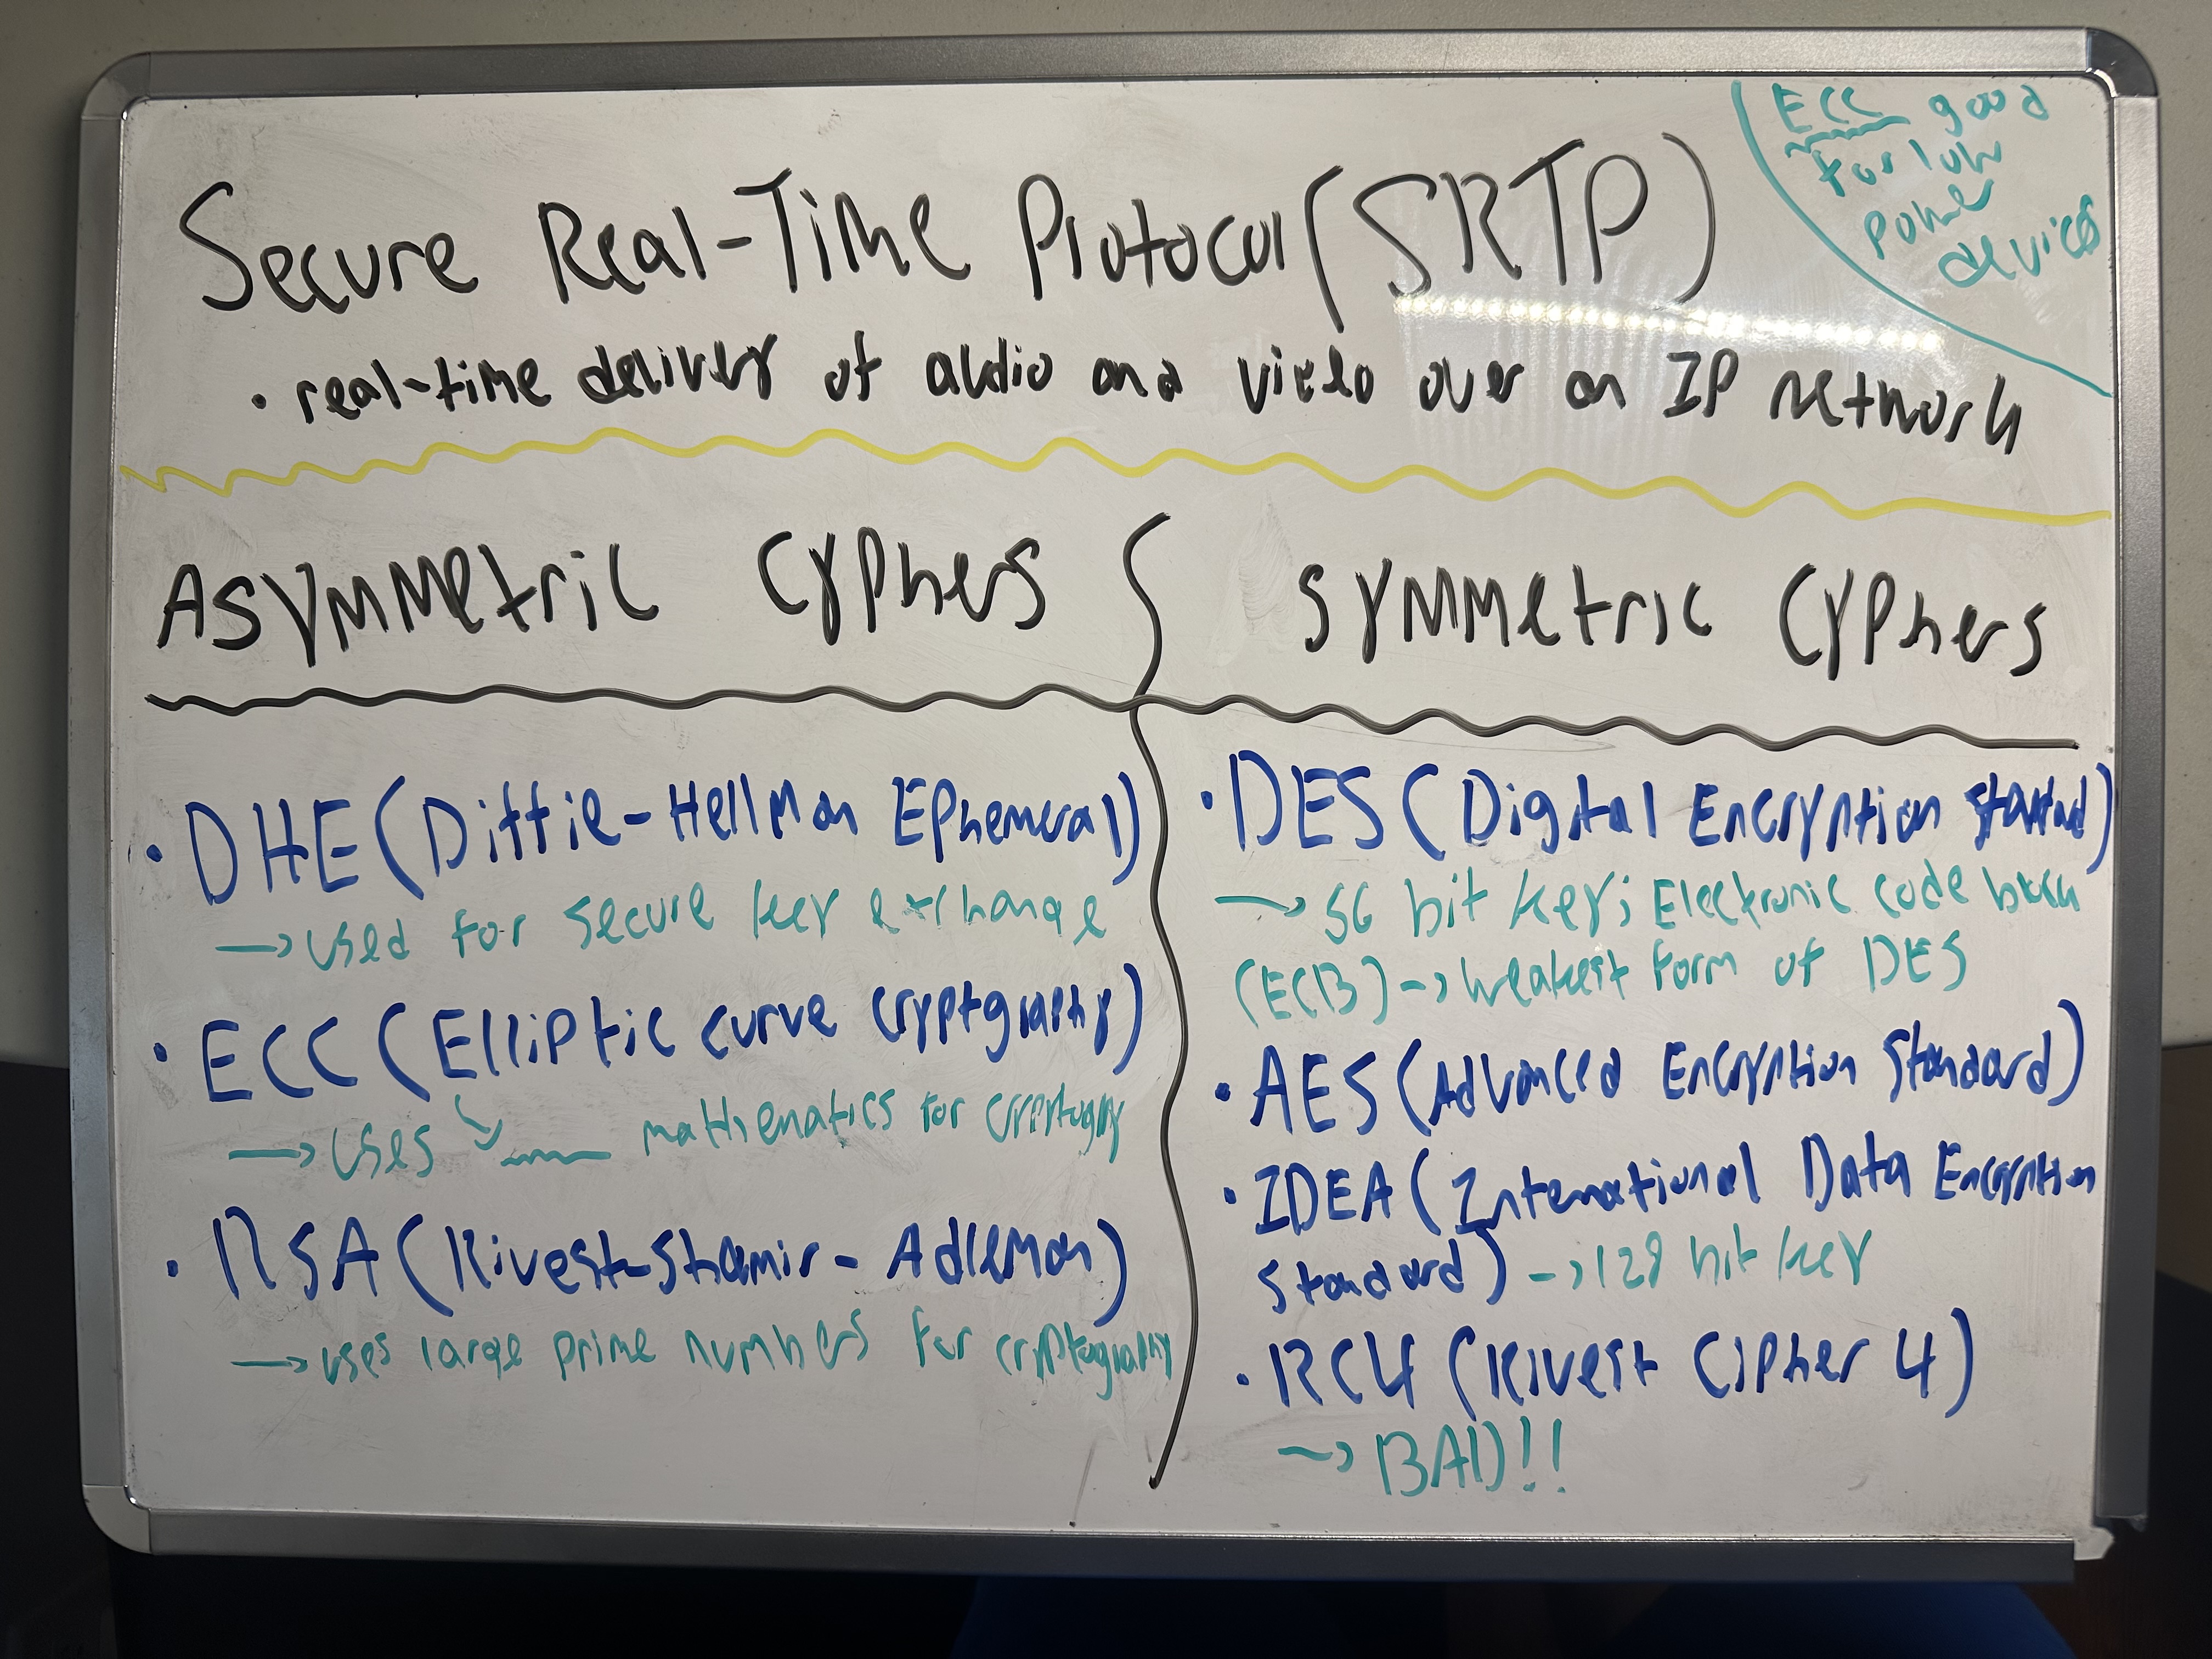 Secure Real-Time Protocol (SRTP)
ECC good
for low
power
devices
• real-time delivery of audio and video over an IP network
Asymmetric Cyphers
• DHE (Diffie-Hellman Ephemeral)
→ used for secure key exchange
• ECC (Elliptic curve cryptgraphy)
→ uses mathematics for cryptography
• RSA (Rivest-Shamir-Adleman)
→ uses large prime numbers for cryptography
Symmetric Cyphers
• DES (Digital Encryption Standard)
→ 56 bit key; Electronic code block
(ECB) → weakest form of DES
• AES (Advanced Encryption Standard)
• IDEA (International Data Encryption
Standard) → 128 bit key
• RC4 (Rivest Cipher 4)
→ BAD!!